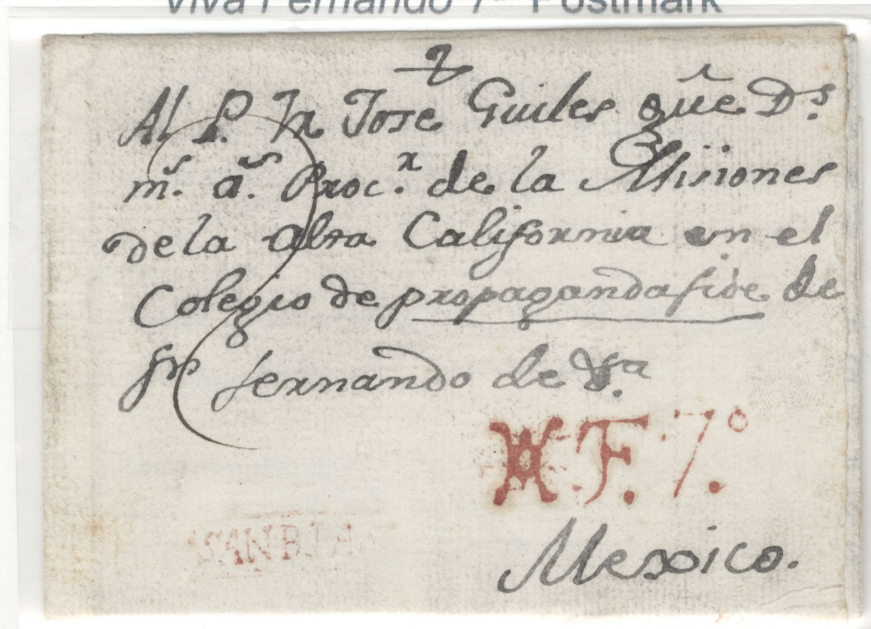 Viva Fernando 7º Postmark
2
Al P. Fr Jose Guiles qũe D.s
m.s a.s Proc.r de la Misiones
de la alta California en el
Colegio de propaganda fide de
Sn fernando de
F. 7.º
SAN BLA
Mexico.